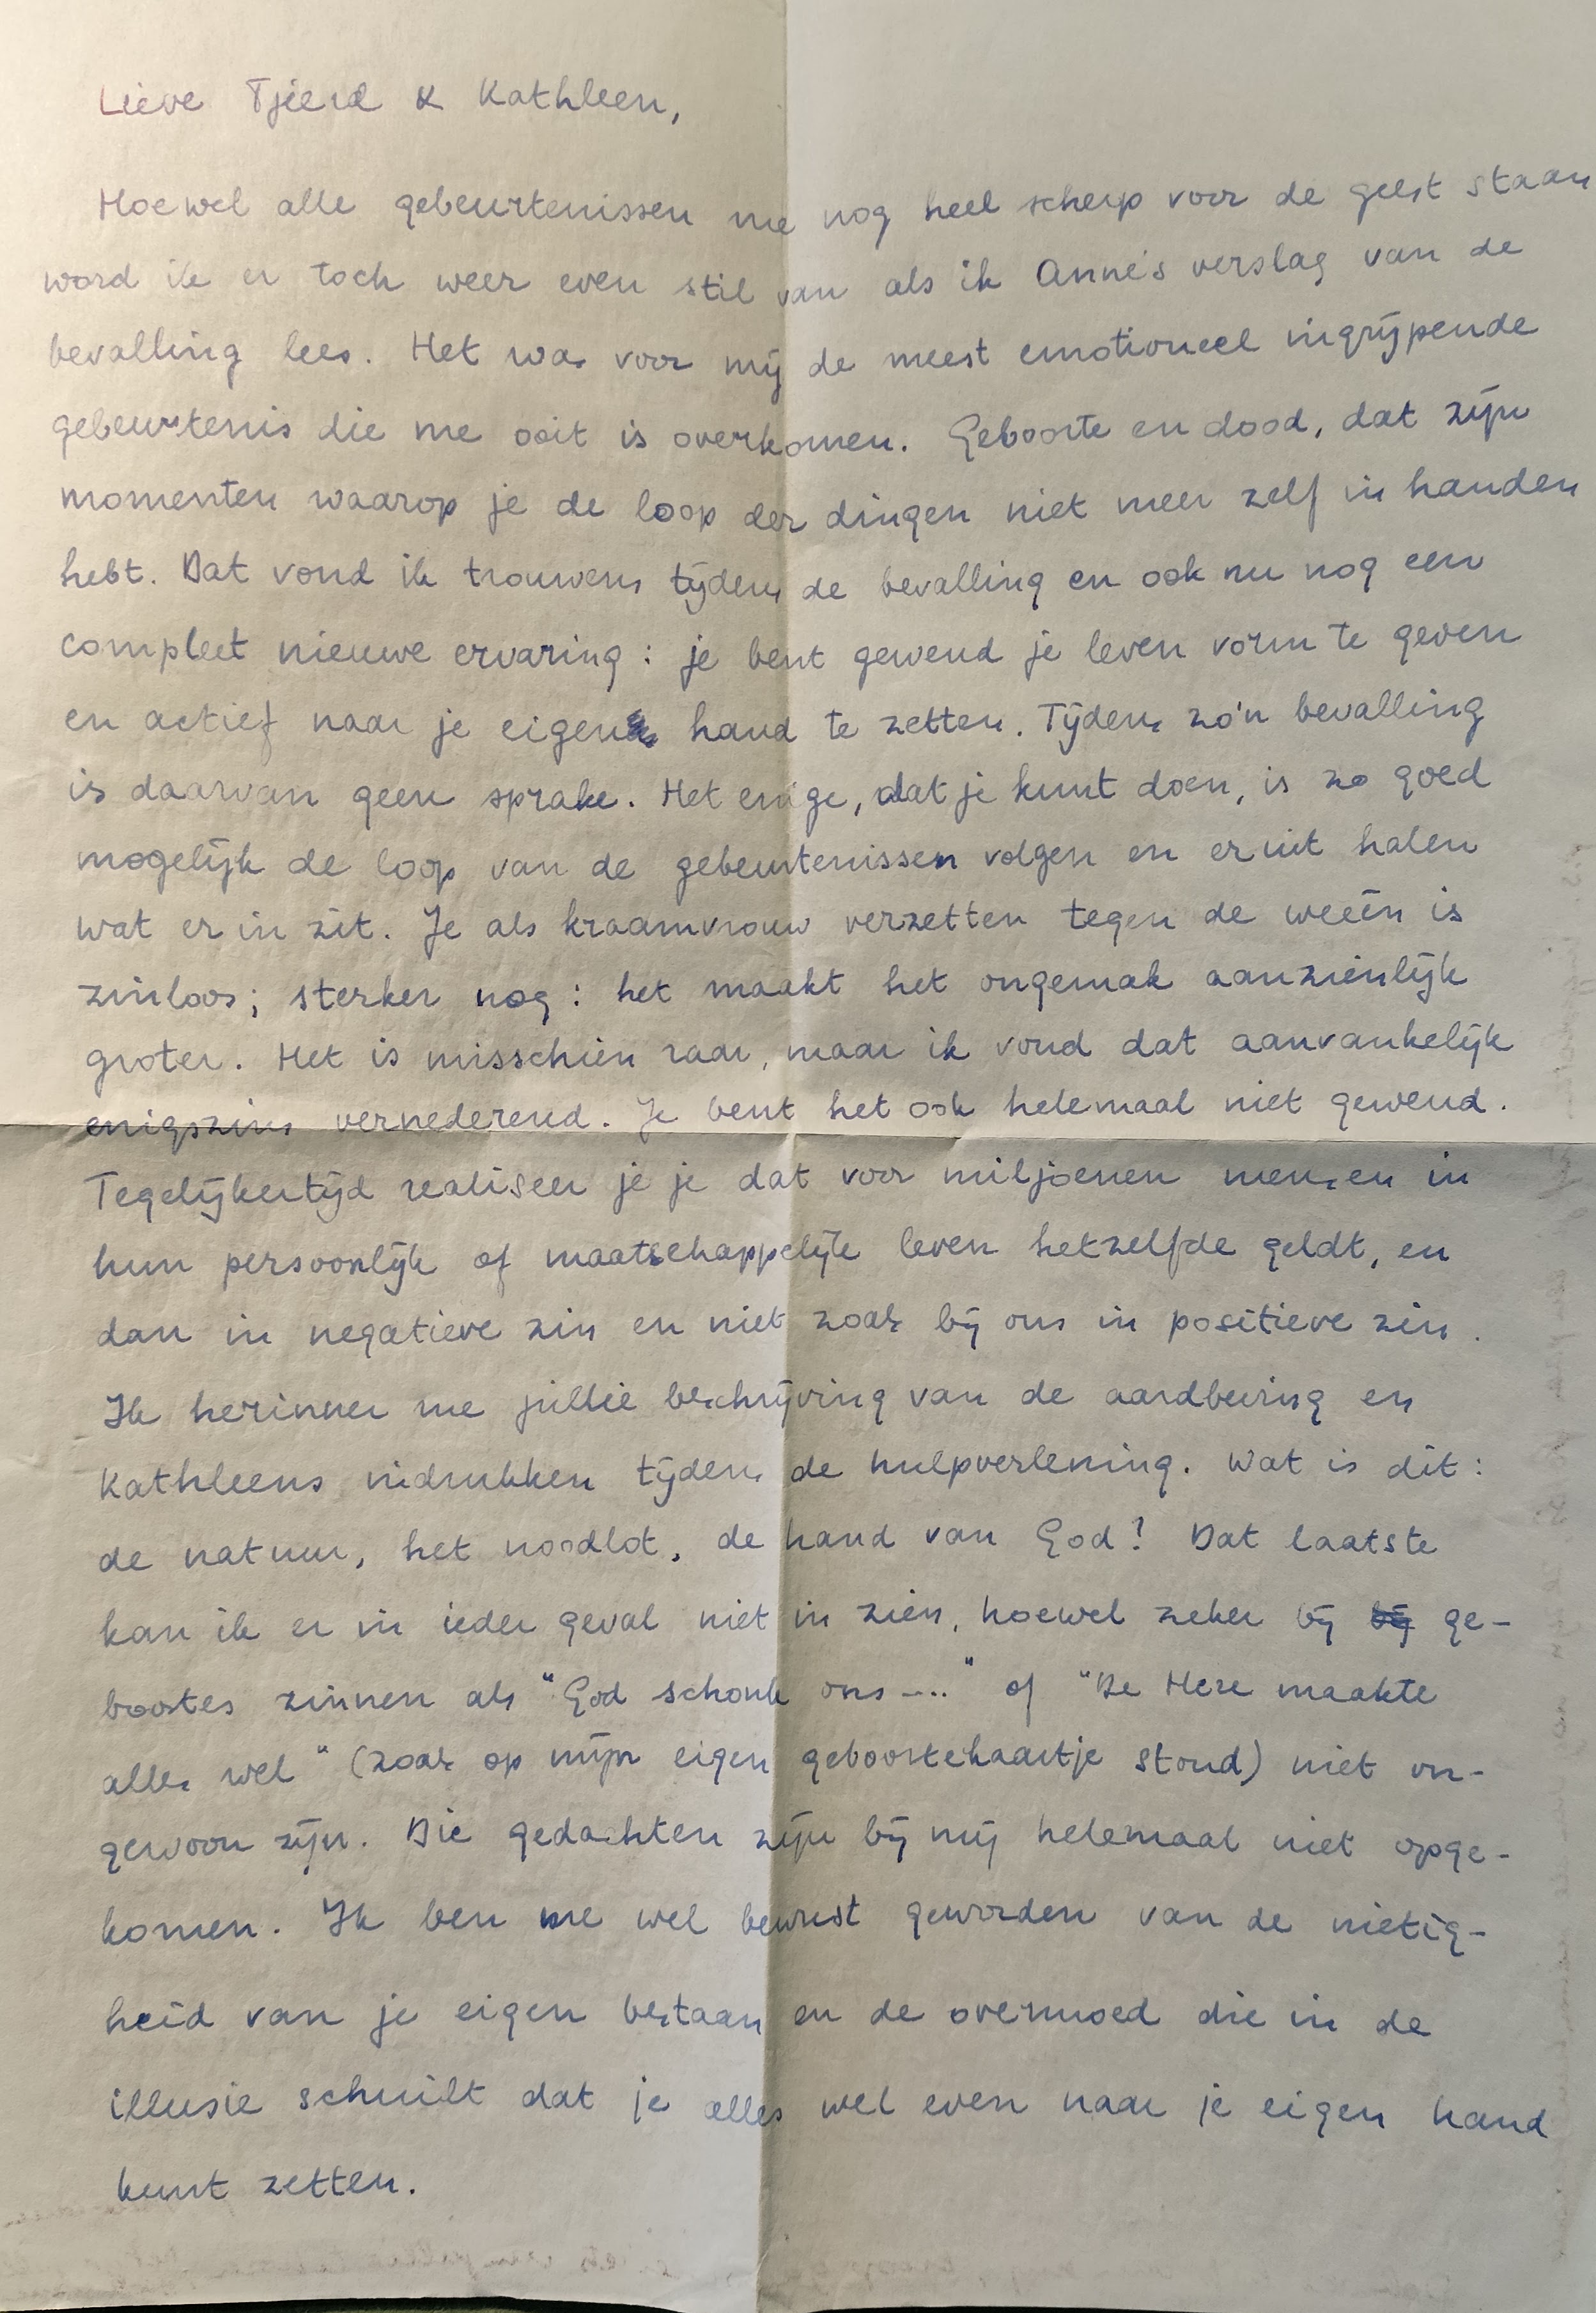 Lieve Tjeerd & Kathleen,
Hoewel alle gebeurtenissen me nog heel scherp voor de geest staan
word ik er toch weer even stil van als ik Anne's verslag van de
bevalling lees. Het was voor mij de meest emotioneel ingrijpende
gebeurtenis die me ooit is overkomen. Geboorte en dood, dat zijn
momenten waarop je de loop der dingen niet meer zelf in handen
hebt. Dat vond ik trouwens tijdens de bevalling en ook nu nog een
compleet nieuwe ervaring: je bent gewend je leven vorm te geven
en actief naar je eigen hand te zetten. Tijdens zo'n bevalling
is daarvan geen sprake. Het enige, dat je kunt doen, is zo goed
mogelijk de loop van de gebeurtenissen volgen en eruit halen
wat er in zit. Je als kraamvrouw verzetten tegen de weeën is
zinloos; sterker nog: het maakt het ongemak aanzienlijk
groter. Het is misschien raar, maar ik vond dat aanvankelijk
enigszins vernederend. Je bent het ook helemaal niet gewend.
Tegelijkertijd realiseer je je dat voor miljoenen mensen in
hun persoonlijk of maatschappelijk leven hetzelfde geldt, en
dan in negatieve zin en niet zoals bij ons in positieve zin.
Ik herinner me jullie beschrijving van de aardbeving en
Kathleens indrukken tijdens de hulpverlening. Wat is dit:
de natuur, het noodlot, de hand van God? Dat laatste
kan ik er in ieder geval niet in zien, hoewel zeker bij bij ge-
boortes zinnen als "God schonk ons...." of "De Here maakte
alles wel" (zoals op mijn eigen geboortekaartje stond) niet on-
gewoon zijn. Die gedachten zijn bij mij helemaal niet opge-
komen. Ik ben me wel bewust geworden van de nietig-
heid van je eigen bestaan en de overmoed die in de
illusie schuilt dat je alles wel even naar je eigen hand
kunt zetten.